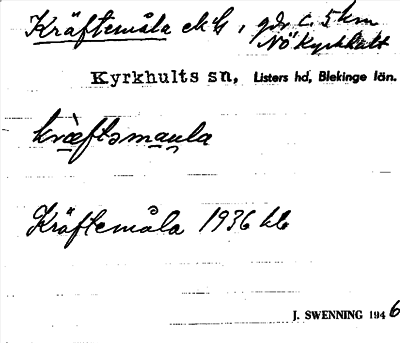 Kräftemåla ek bl, gdr c. 5 km
NÖ kyrkhult
Kyrkhults sn, Listers hd, Blekinge län.
kræftsmaula
Kräftemåla 1936 kb
J. SWENNING 1946